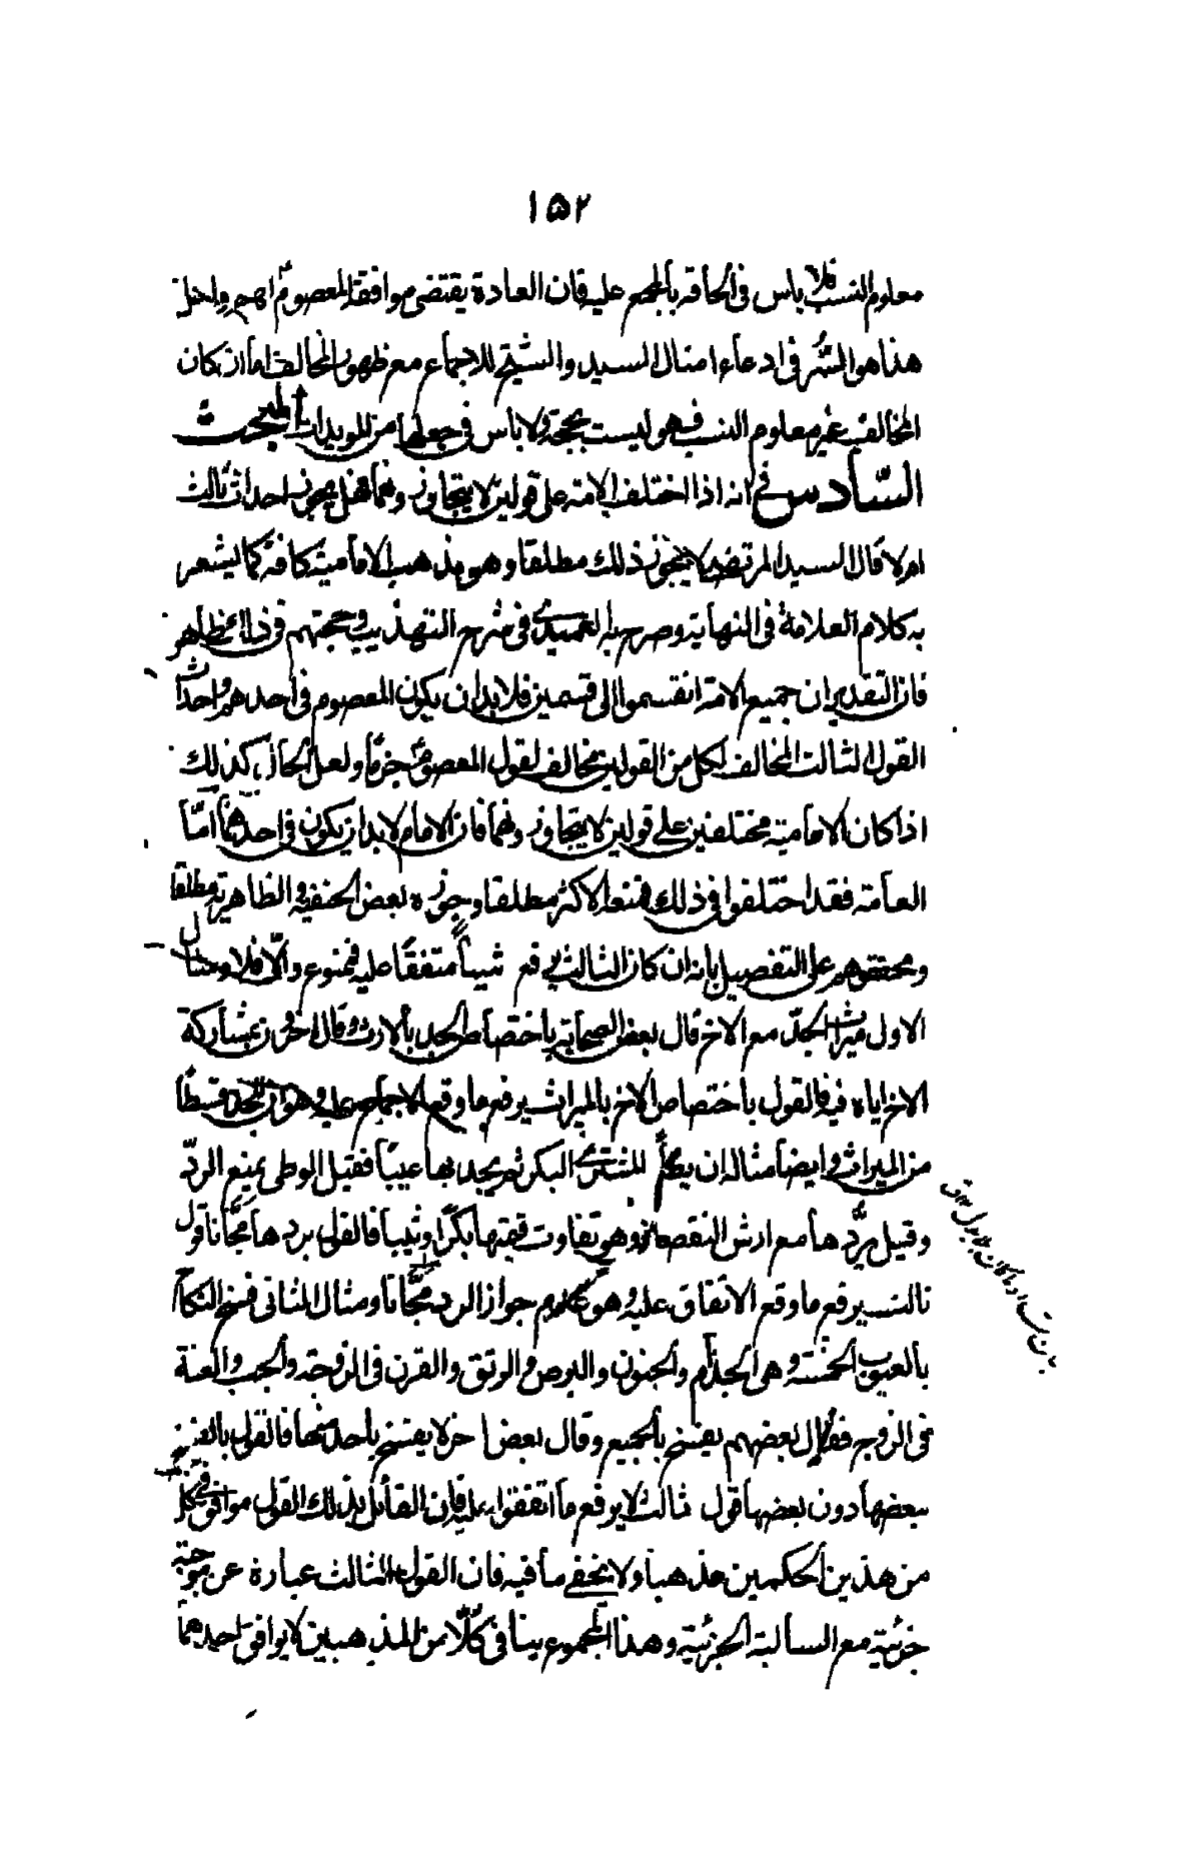 ۱۵۲
معلوم النسب فلا باس فی الحاقه بالمجمع علیه فان العادة یقتضی موافقة المعصوم لهم ولعل
هذا هو السّر فی ادعاء امثال السید والشیخ للاجماع مع ظهور المخالف اما ان کان
المخالف غیر معلوم النسب فهو لیست بحجة ولا باس فی جعلها من المویدات المبحث
السّادس فی انه اذا اختلف الامة علی قولین لا یتجاوزونهما فهل یجوز احداث ثالث
ام لا قال السید المرتضی لا یجوز ذلك مطلقا وهو مذهب الامامیة کافة کما یشعر
به کلام العلامة فی النهایة وصرح به العمیدی فی شرح التهذیب وحجتهم فی ذلك ظاهر
فان التقدیر ان جمیع الامة انقسموا الی قسمین فلا بد ان یکون المعصوم فی احدهم واحداث
القول الثالث المخالف لکل من القولین مخالف لقول المعصوم جزمًا ولعل الحال کذلك
اذا کان الامامیة مختلفین علی قولین لا یتجاوزونهما فان الامام لا بد ان یکون فی احدهما امّا
العامة فقد اختلفوا فی ذلك فمنعه الاکثر مطلقا وجوزه بعض الحنفیة والظاهریة مطلقا
ومحققوهم علی التفصیل بانه ان کان الثالث یرفع شیئًا متفقًا علیه فممنوع والّا فلا ومثال
الاول میراث الجدّ مع الاخ قال بعض الصحابة باختصاص الجد بالارث وقال اخرون بمشارکة
الاخ ایاه فیه فالقول باختصاص الاخ بالمیراث یرفع ما وقع الاجماع علیه وهو ان للجد قسطًا
من المیراث وایضا مثاله ان یطأ المشتری البکر ثم یجد بها عیبًا فقیل الوطی یمنع الردّ
وقیل یردّها مع ارش النقصان وهو تفاوت قیمتها بکرًا وثیبا فالقول بردها مجّانا قول
ثالث یرفع ما وقع الاتفاق علیه وهو عدم جواز الرد مجّانا ومثال الثانی فسخ النکاح
بالعیوب الخمسة وهی الجذام والجنون والبرص والرتق والقرن فی الزوجة والجب والعنة
فی الزوج فقال بعضهم یفسخ بالجمیع وقال بعض اخر لا یفسخ باحد منها فالقول بالفسخ
ببعضها دون بعضها قول ثالث لا یرفع ما اتفقوا علیه فان القائل بذلك القول موافق فی کل
من هذین الحکمین مذهبا ولا یخفی ما فیه فان القول الثالث عبارة عن موجبة
جزئیة مع السالبة الجزئیة وهذا المجموع ینافی کلًّا من المذهبین لا یوافق احدهما